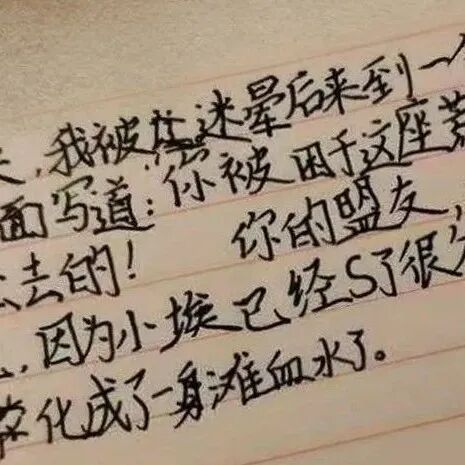 ,我被迷晕后来到一
面写道:你被困于这座
去的! 你的盟友,
,因为小埃已经S了很
化成了一身滩血水了。